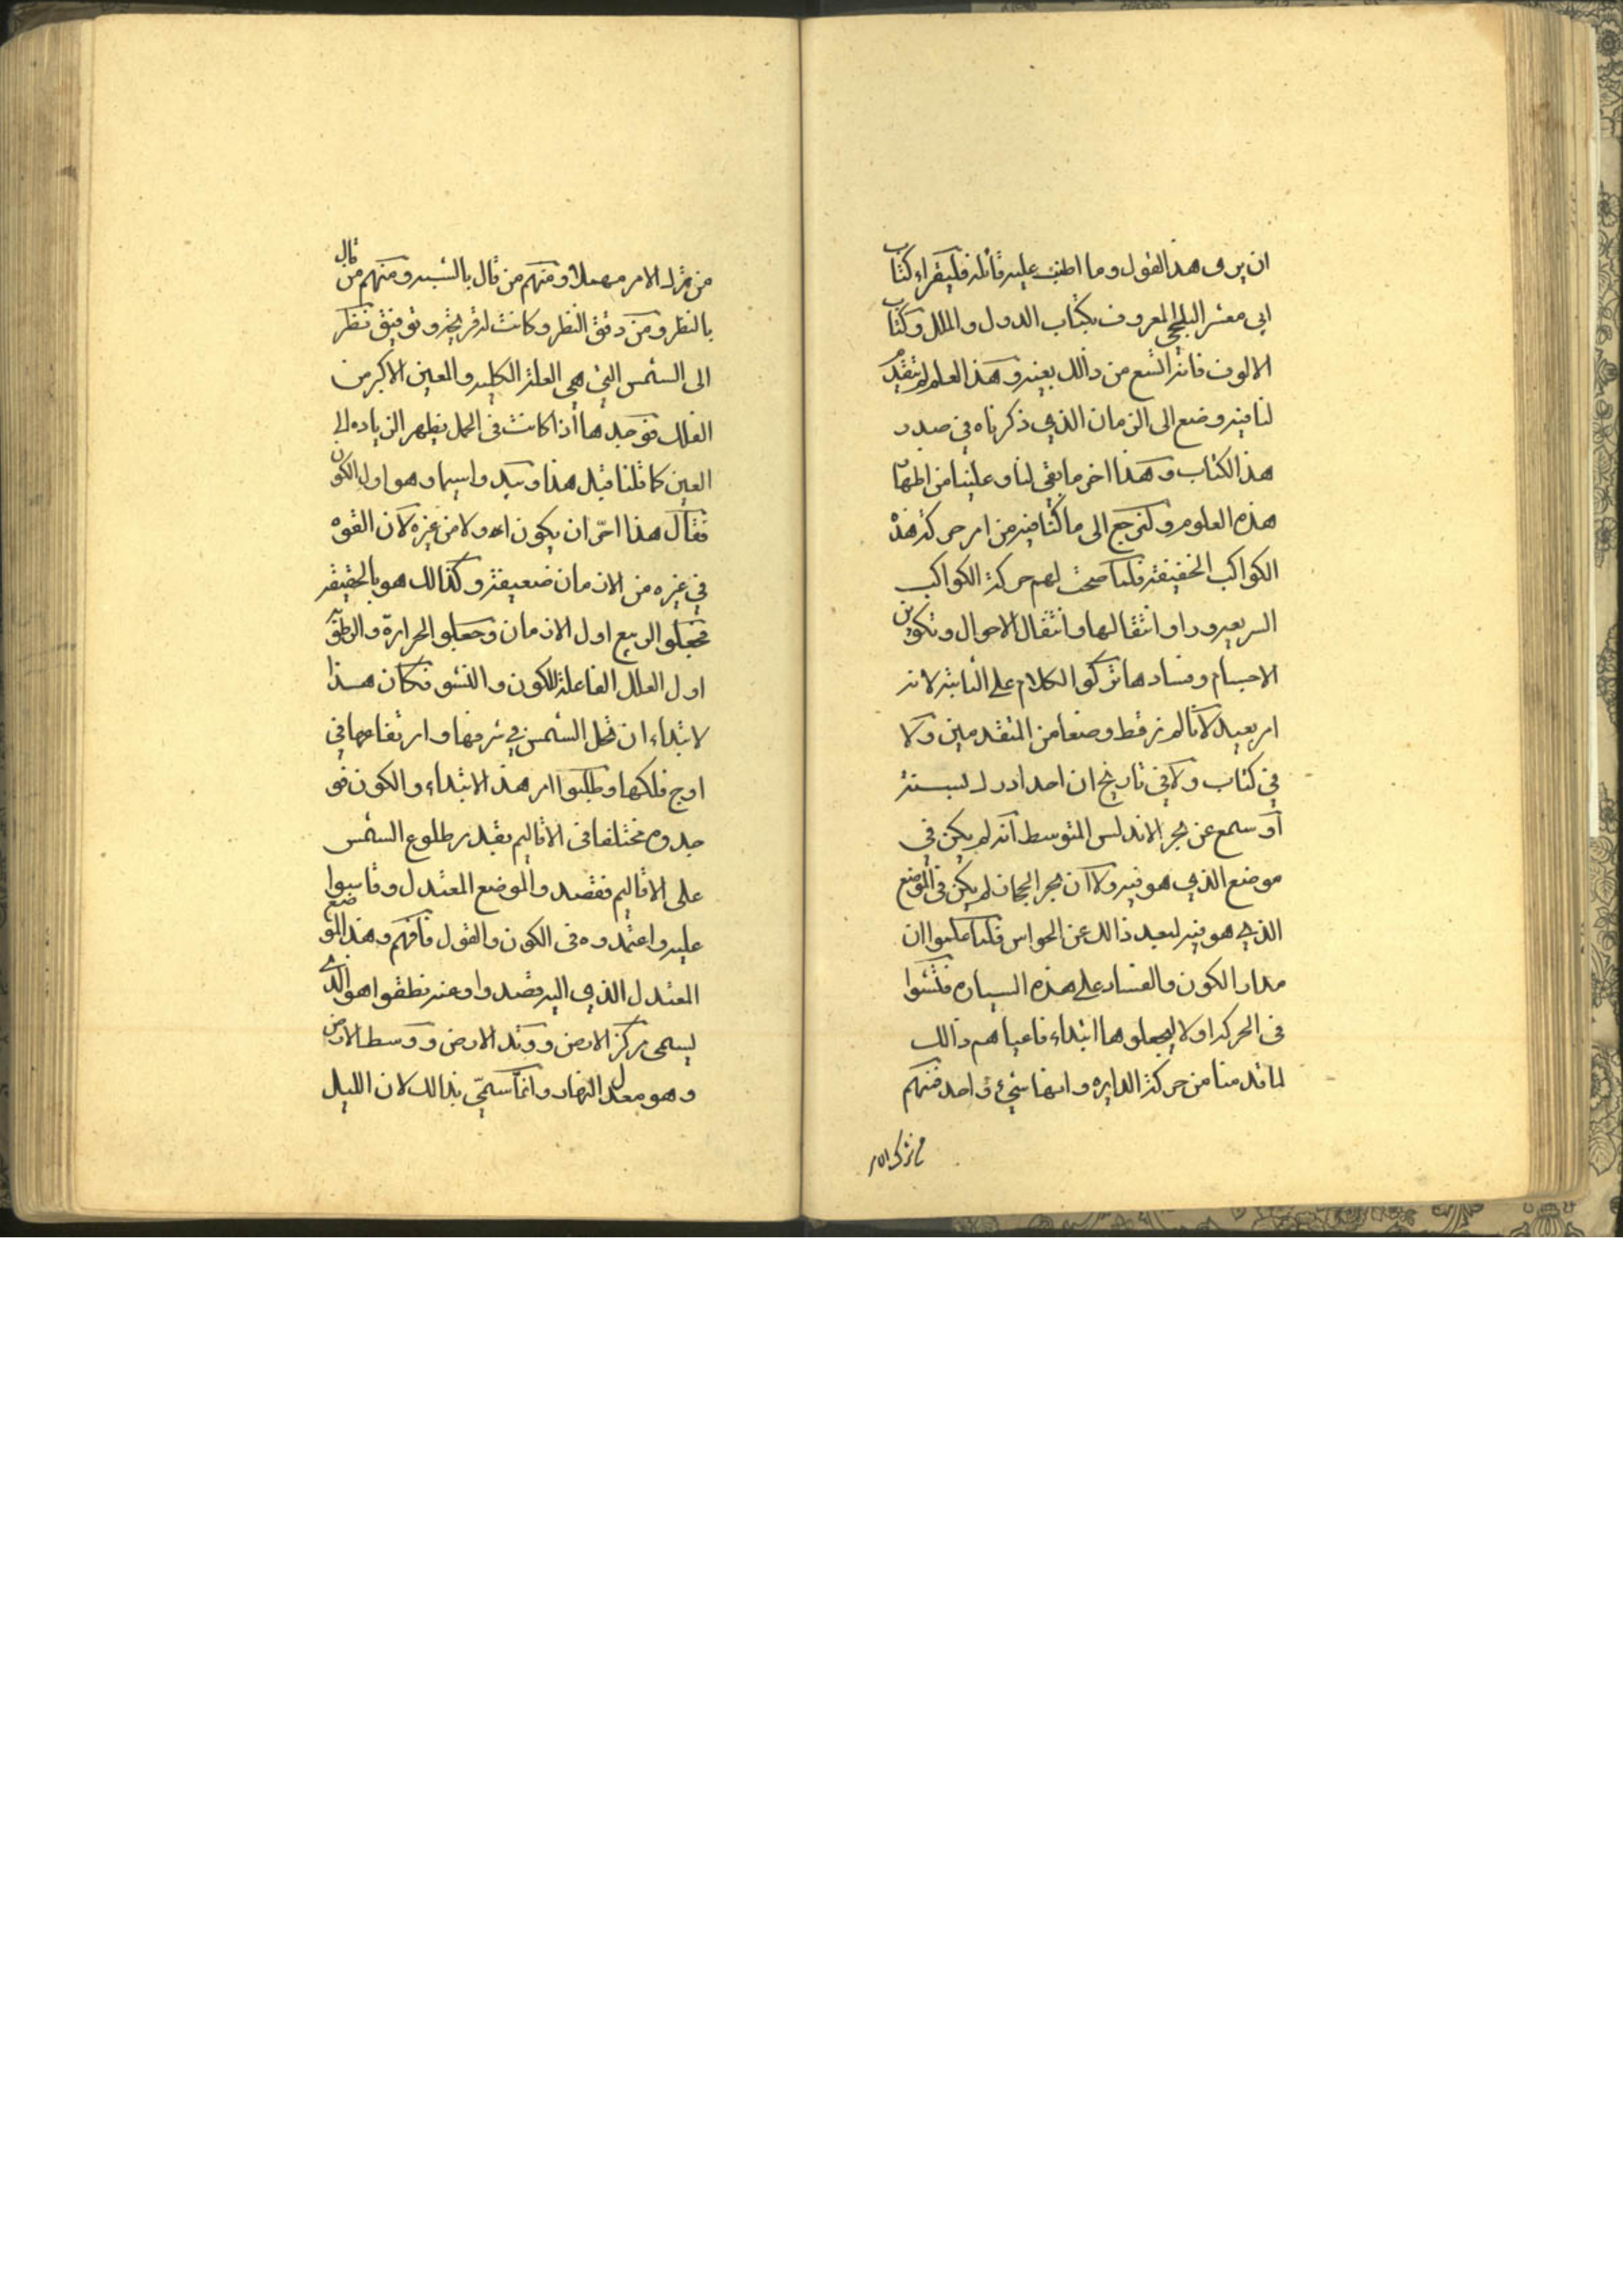 ان يرى هذ القول وما اطنب عليه قائله فليقراء كتاب
ابي معشر البلخي المعروف بكتاب الدول والملل وكتاب
الالوف فانه اشبع من ذالك بعينه وهذ العلم لم يتقدم
لنا فيه وضع الى الزمان الذي ذكرناه في صدر
هذ الكتاب وهذا اخر ما بقى لنا وعلينا من اظهار
هذه العلوم ولنرجع الى ما كنا فيه من امر حركة هذه
الكواكب الخفيفة فلما صحت لهم حركة الكواكب
السريعه وراو انتقالها وانتقال الاحوال وتكوين
الاجسام وفسادها تركوا الكلام على الثابته لانه
امر بعيد لانا لم نر قط وضعا من المتقدمين ولا
في كتاب ولا في تاريخ ان احدا ادرك لسبته
او سمع عن بحر الاندلس المتوسط انه لم يكن في
موضع الذي هو فيه ولا ان بحر الحجاز لم يكن في الموضع
الذي هو فيه لبعد ذالك عن الحواس فلما علموا ان
مدار الكون والفساد على هذه السياره فتشوا
في الحركه اولا ليجعلوها ابتداء فاعياهم ذالك
لما قدمنا من حركة الدايره وانها شيء واحد فمنهم
من ترك الامر
من ترك الامر مهملا ومنهم من قال بالشبه ومنهم من قال
بالنظر ومن دقق النظر وكانت له قريحه وتوفيق نظر
الى الشمس التي هي العلة الكليه والعين الاكبر من
الفلك فوجدها اذا كانت في الحمل يظهر الزياده الى
العين كما قلنا قبل هذا وسيما وهو اول الكون
فقال هذا احق ان يكون اولا من غيره لان القوه
في غيره من الازمان ضعيفة وكذالك هو بالحقيقه
فجعلو الربيع اول الازمان وجعلو الحرارة والرطوبه
اول العلل الفاعلة للكون والنشو فكان هذا
لابتداء ان تحل الشمس في شرفها وارتفاعها في
اوج فلكها وطلبوا امر هذ الابتداء والكون فو
جدوه مختلفا في الاقاليم بقدر طلوع الشمس
على الاقاليم فقصدو الموضع المعتدل وقاسوا
عليه واعتمدوه في الكون والقول فافهم وهذ الموضع
المعتدل الذي اليه قصدوا وعنه نطقوا هو الذي
يسمى مركز الارض ووتد الارض ووسط الارض
وهو معدل النهار وانما سمّي بذالك لان الليل